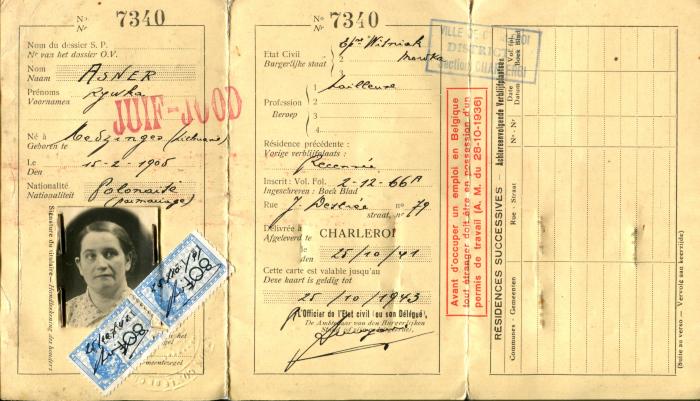 No
No 7340
Nom du dossier S. P.
Nr van het dossier O.V.
Nom
Naam ASNER
Prénoms
Voornames Rywka
JUIF-JOOD
Né à
Geboren te (Lithuanie)
Le
Den 15-2-1905
Nationalité
Nationaliteit Polonaise
(par mariage)
Signature du titulaire — Handteekening des houders
80F
80F
No
No 7340
Etat Civil
Burgerlijke staat
1 Epse Witniak
2
Profession
Beroep
1 Tailleuse
2
3.
4.
Résidence précédente :
Vorige verblijfplaats :
Recensée
Inscrit : Vol. Fol. 2-12-66A
Ingeschreven : Boek Blad
Rue J. Destrée no 79
straat, nr
Délivrée à
Afgeleverd te CHARLEROI
le
den 25/10/41
Cette carte est valable jusqu'au
Deze kaart is geldig tot
25/10/1943
L'Officier de l'Etat civil (ou son Délégué),
De Ambtenaar van den Burgerlijken
VILLE DE CHARLEROI
DISTRICT
Section CHARLEROI
Avant d'occuper un emploi en Belgique
tout étranger doit être en possession d'un
permis de travail (A. M. du 28-10-1936)
RÉSIDENCES SUCCESSIVES — Achtereenvolgende Verblijfplaatsen
Communes - Gemeenten
Rue - Straat
No - Nr
Date
Datum
Vol. fol.
Boek Blad
(Suite au verso — Vervolg aan keerzijde)